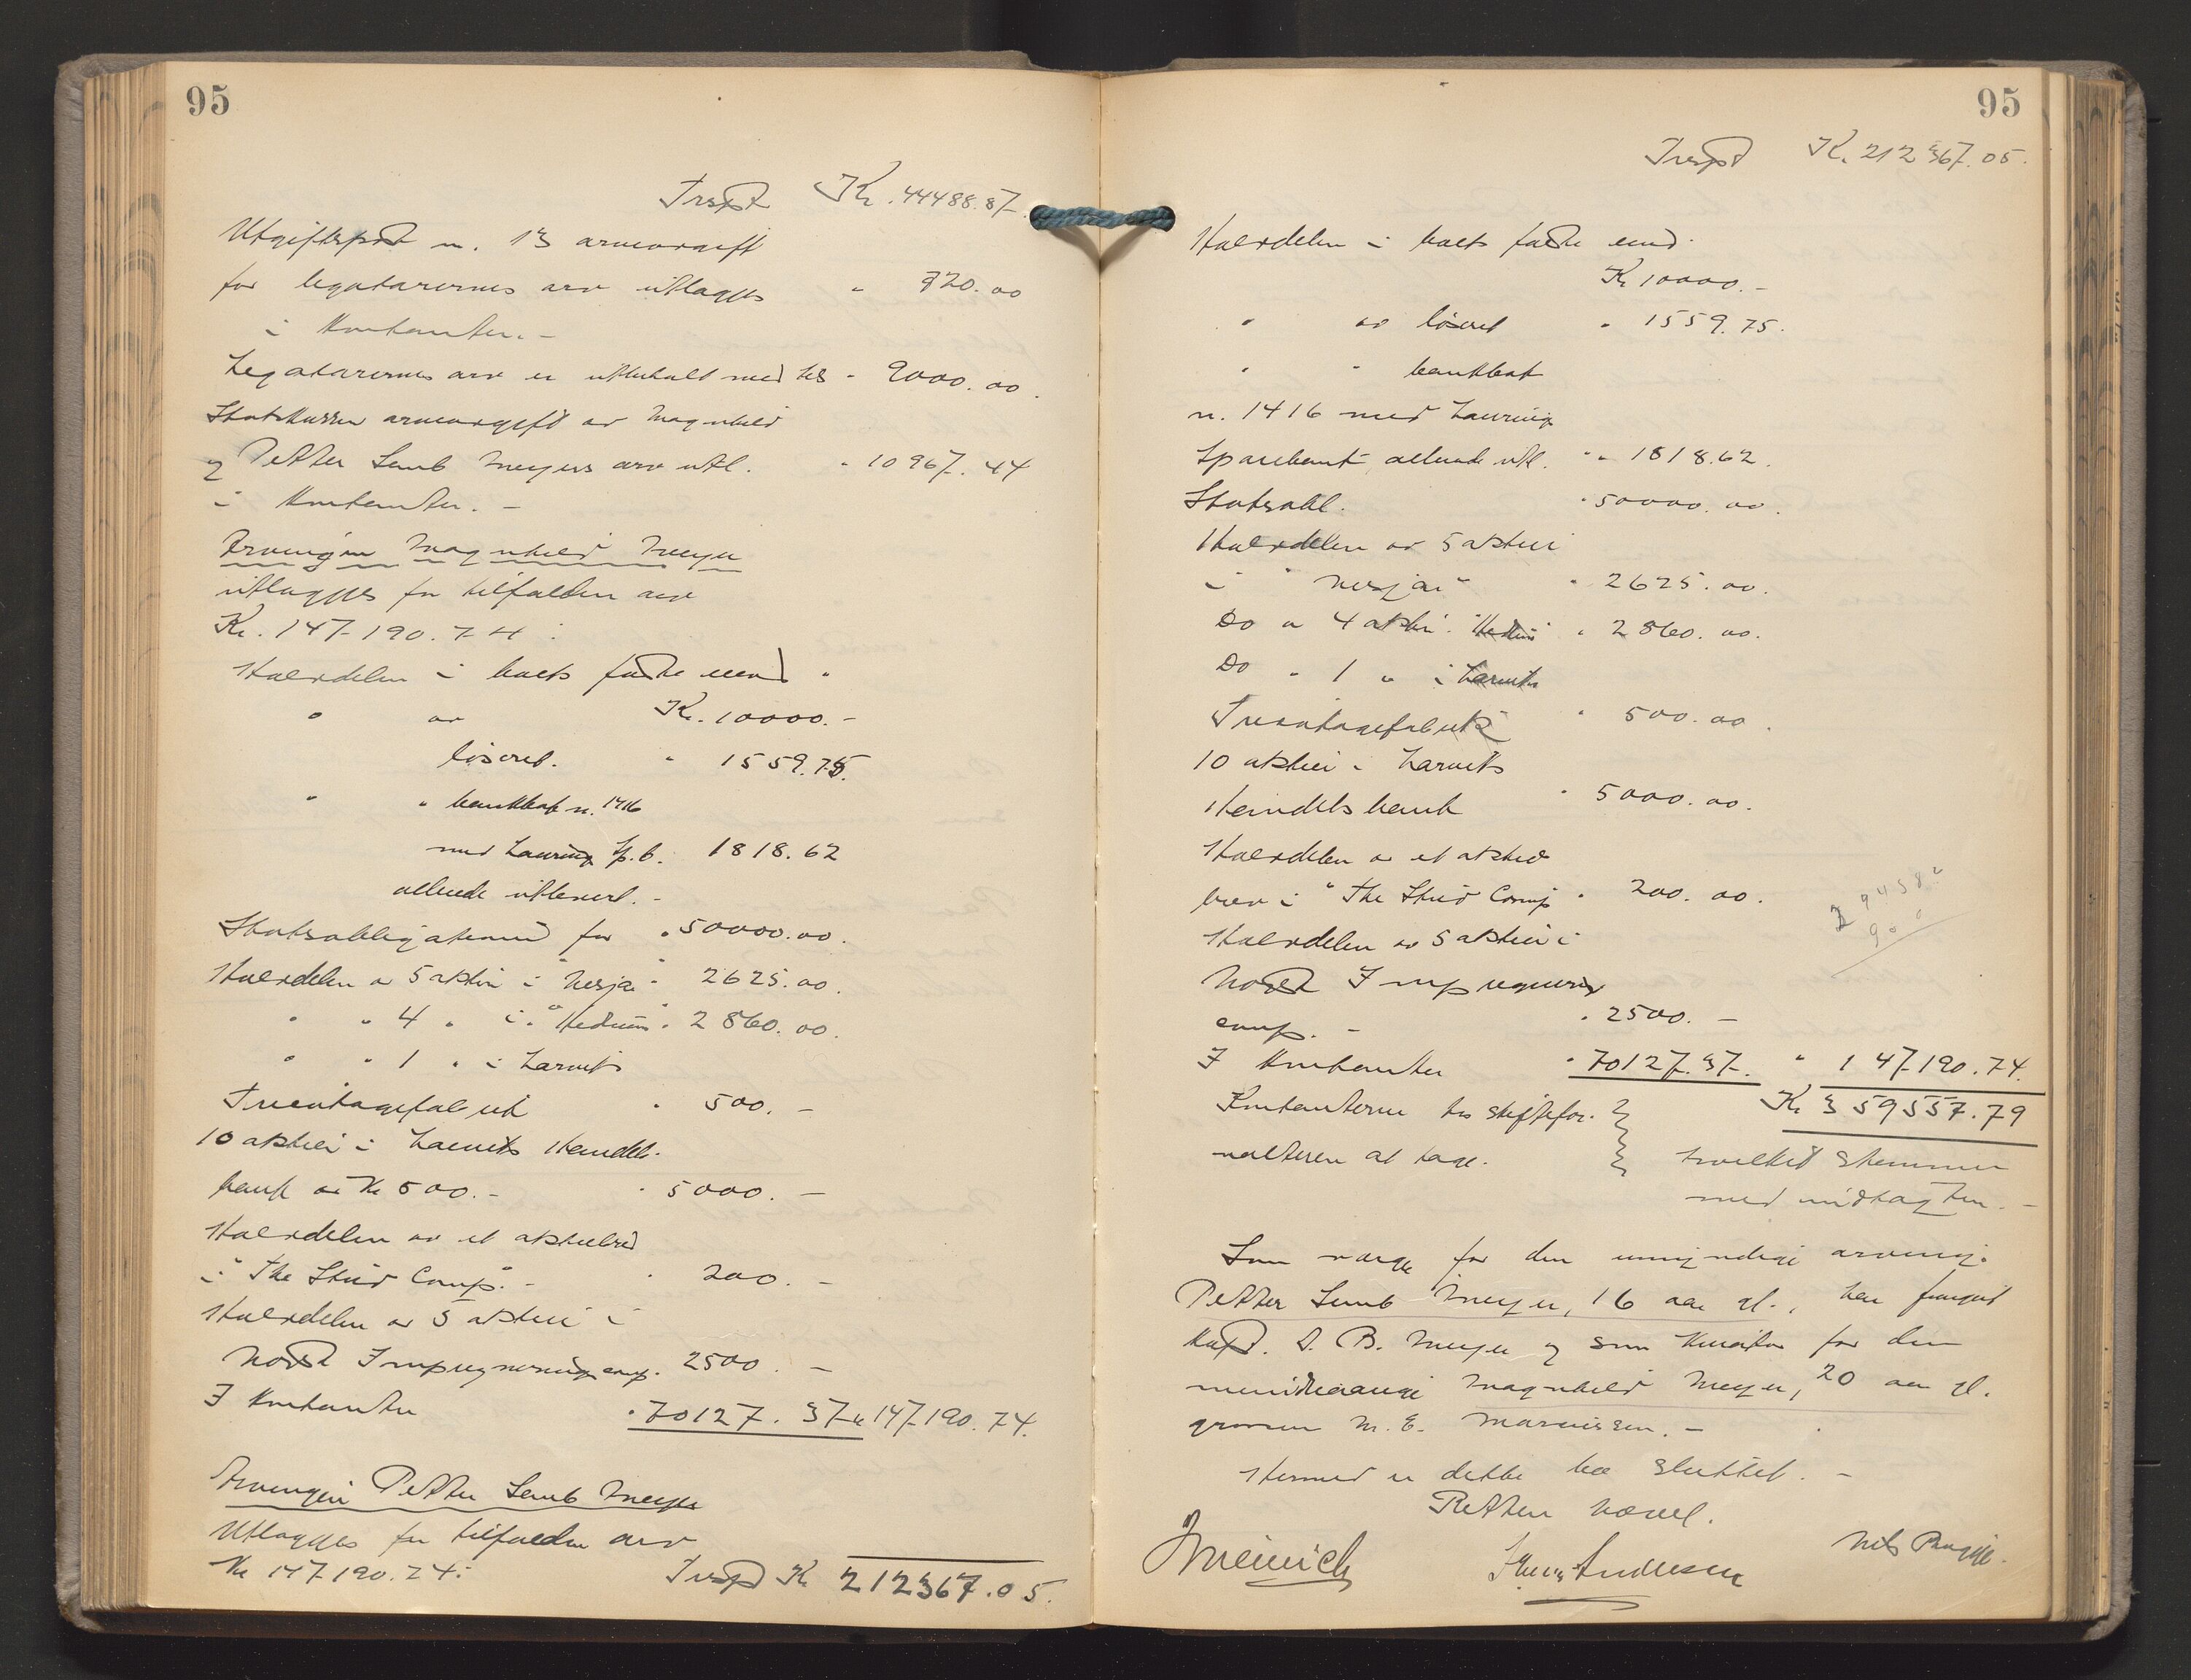 95
Trspt Kr. 44488.87
Utgiftspost n. 13 arveavgift
for legatarernes arv utlægges " 720.00
i kontanter. -
Legatarernes arv er utbetalt med tils. " 9000.00.
Statskassen arveavgift av Magnhild
og Petter Lemb Meyers arv utl. " 10967.44
i kontanter. -
Arvingen Magnhild Meyer
utlægges for tilfalden arv
Kr. 147190.74:
Halvdelen i boets faste eiend.
" av Kr. 10000.-
løsøret. " 1559.75.
" " bankbok n. 1416
med Lauring Sp.b. 1818.62
allerede utlevert. -
Statsobligationer for " 50000.00.
Halvdelen av 5 aktier i "Nesjar" 2625.00.
" " 4 " i "Hedrum" 2860.00.
" " 1 " i Larviks
Treuldagefabrik " 500. -
10 aktier i Larviks Handels-
bank a Kr 500.- " 5000. -
Halvdelen av et aktiebrev
i "The Stuv Comp". - " 200. -
Halvdelen av 5 aktier i
Norsk Impregnerings comp. 2500. -
I kontanter " 70127.37 " 147190.74.
Arvingen Petter Lemb Meyer
Utlægges for tilfalden arv
Kr 147190.74: Trspt Kr 212367.05.
95
Trspt Kr. 212367.05.
Halvdelen i boets faste eiend.
Kr 10000.-
" av løsøret " 1559.75.
" " bankbok
n. 1416 med Lauring
Sparebank, allerede utl. " 1818.62.
Statsobl. " 50000.00.
Halvdelen av 5 aktier
i "Nesjar" " 2625.00.
Do " 4 aktier i "Hedrum" " 2860.00.
Do " 1 " i Larviks
" 500.00.
10 aktier i Larviks
Handelsbank " 5000.00.
Halvdelen av et aktie
brev i "The Stuv Comp " 200.00.
Halvdelen av 5 aktier i
Norsk Impregnerings
comp. - " 2500. -
I kontanter " 70127.37. " 147190.74.
Kontanterne hos skiftefor- Kr 359557.79
valteren at tage. hvilket stemmer
med indtægten. -
Som værge for den umyndige arving
Petter Lemb Meyer, 16 aar gl., har fungert
kapt. S. B. Meyer og som kurator for den
mindreaarige Magnhild Meyer, 20 aar gl.
grosserer M. E. -
Hermed er dette bo sluttet. -
Retten hævet.
Andersen
Nils Bugge.